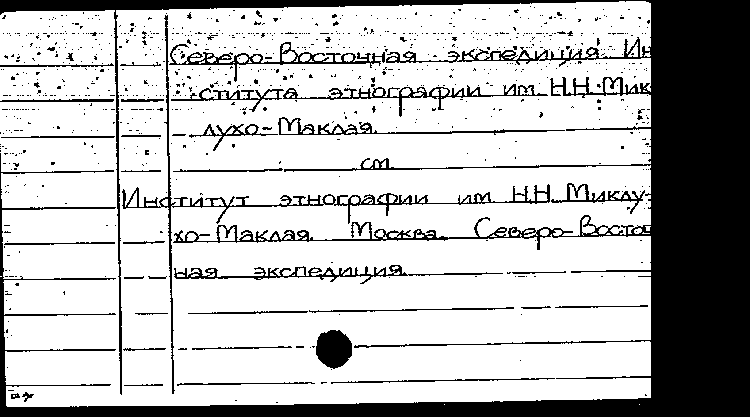 Северо-Восточная экспедиция Ин
ститута этнографии им Н.Н. Мик
лухо-Маклая.
см.
Институт этнографии им Н.Н. Миклу-
хо-Маклая. Москва. Северо-Восточ
ная экспедиция.